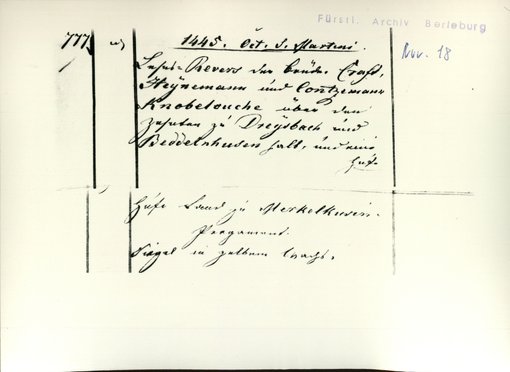 Fürstl. Archiv Berleburg
777 a) 1445. Oct. S. Martini.
Nov. 18
Lehns-Revers der Brüder Craft,
Heynemann und Contzemann
Knobelouche über den
Zehnten zu Dreysbach und
Beddelnhusen halb, und eine
Hufe
Hufe Land zu Merkelhusen.
Pergament.
Siegel in gelbem Wachs.